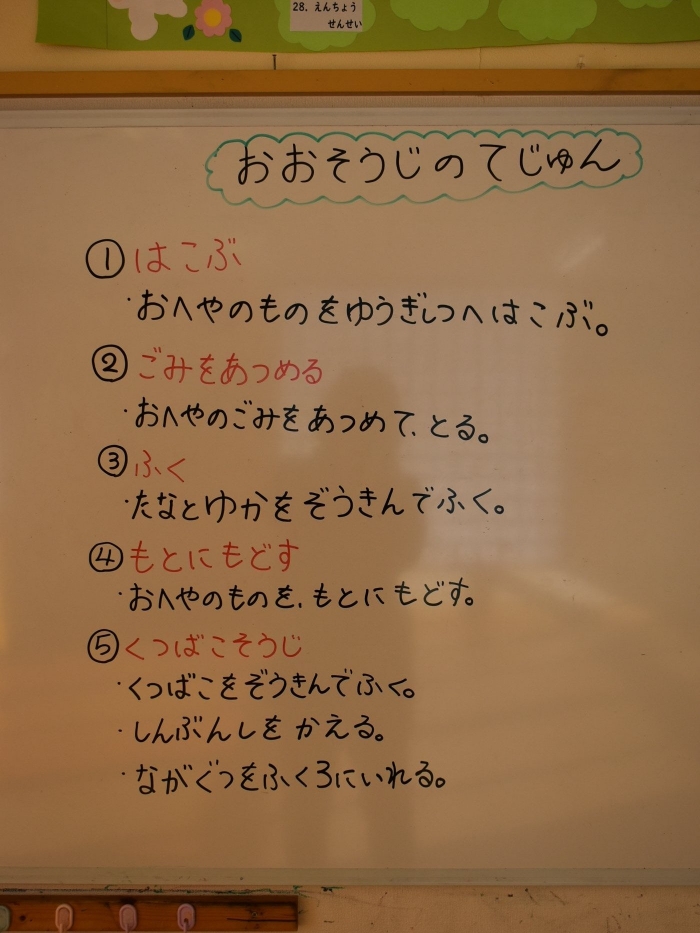 28、えんちょう
せんせい
おおそうじのてじゅん
① はこぶ
・おへやのものをゆうぎしつへはこぶ。
② ごみをあつめる
・おへやのごみをあつめて、とる。
③ ふく
・たなとゆかをぞうきんでふく。
④ もとにもどす
・おへやのものを、もとにもどす。
⑤ くつばこそうじ
・くつばこをぞうきんでふく。
・しんぶんしをかえる。
・ながぐつをふくろにいれる。